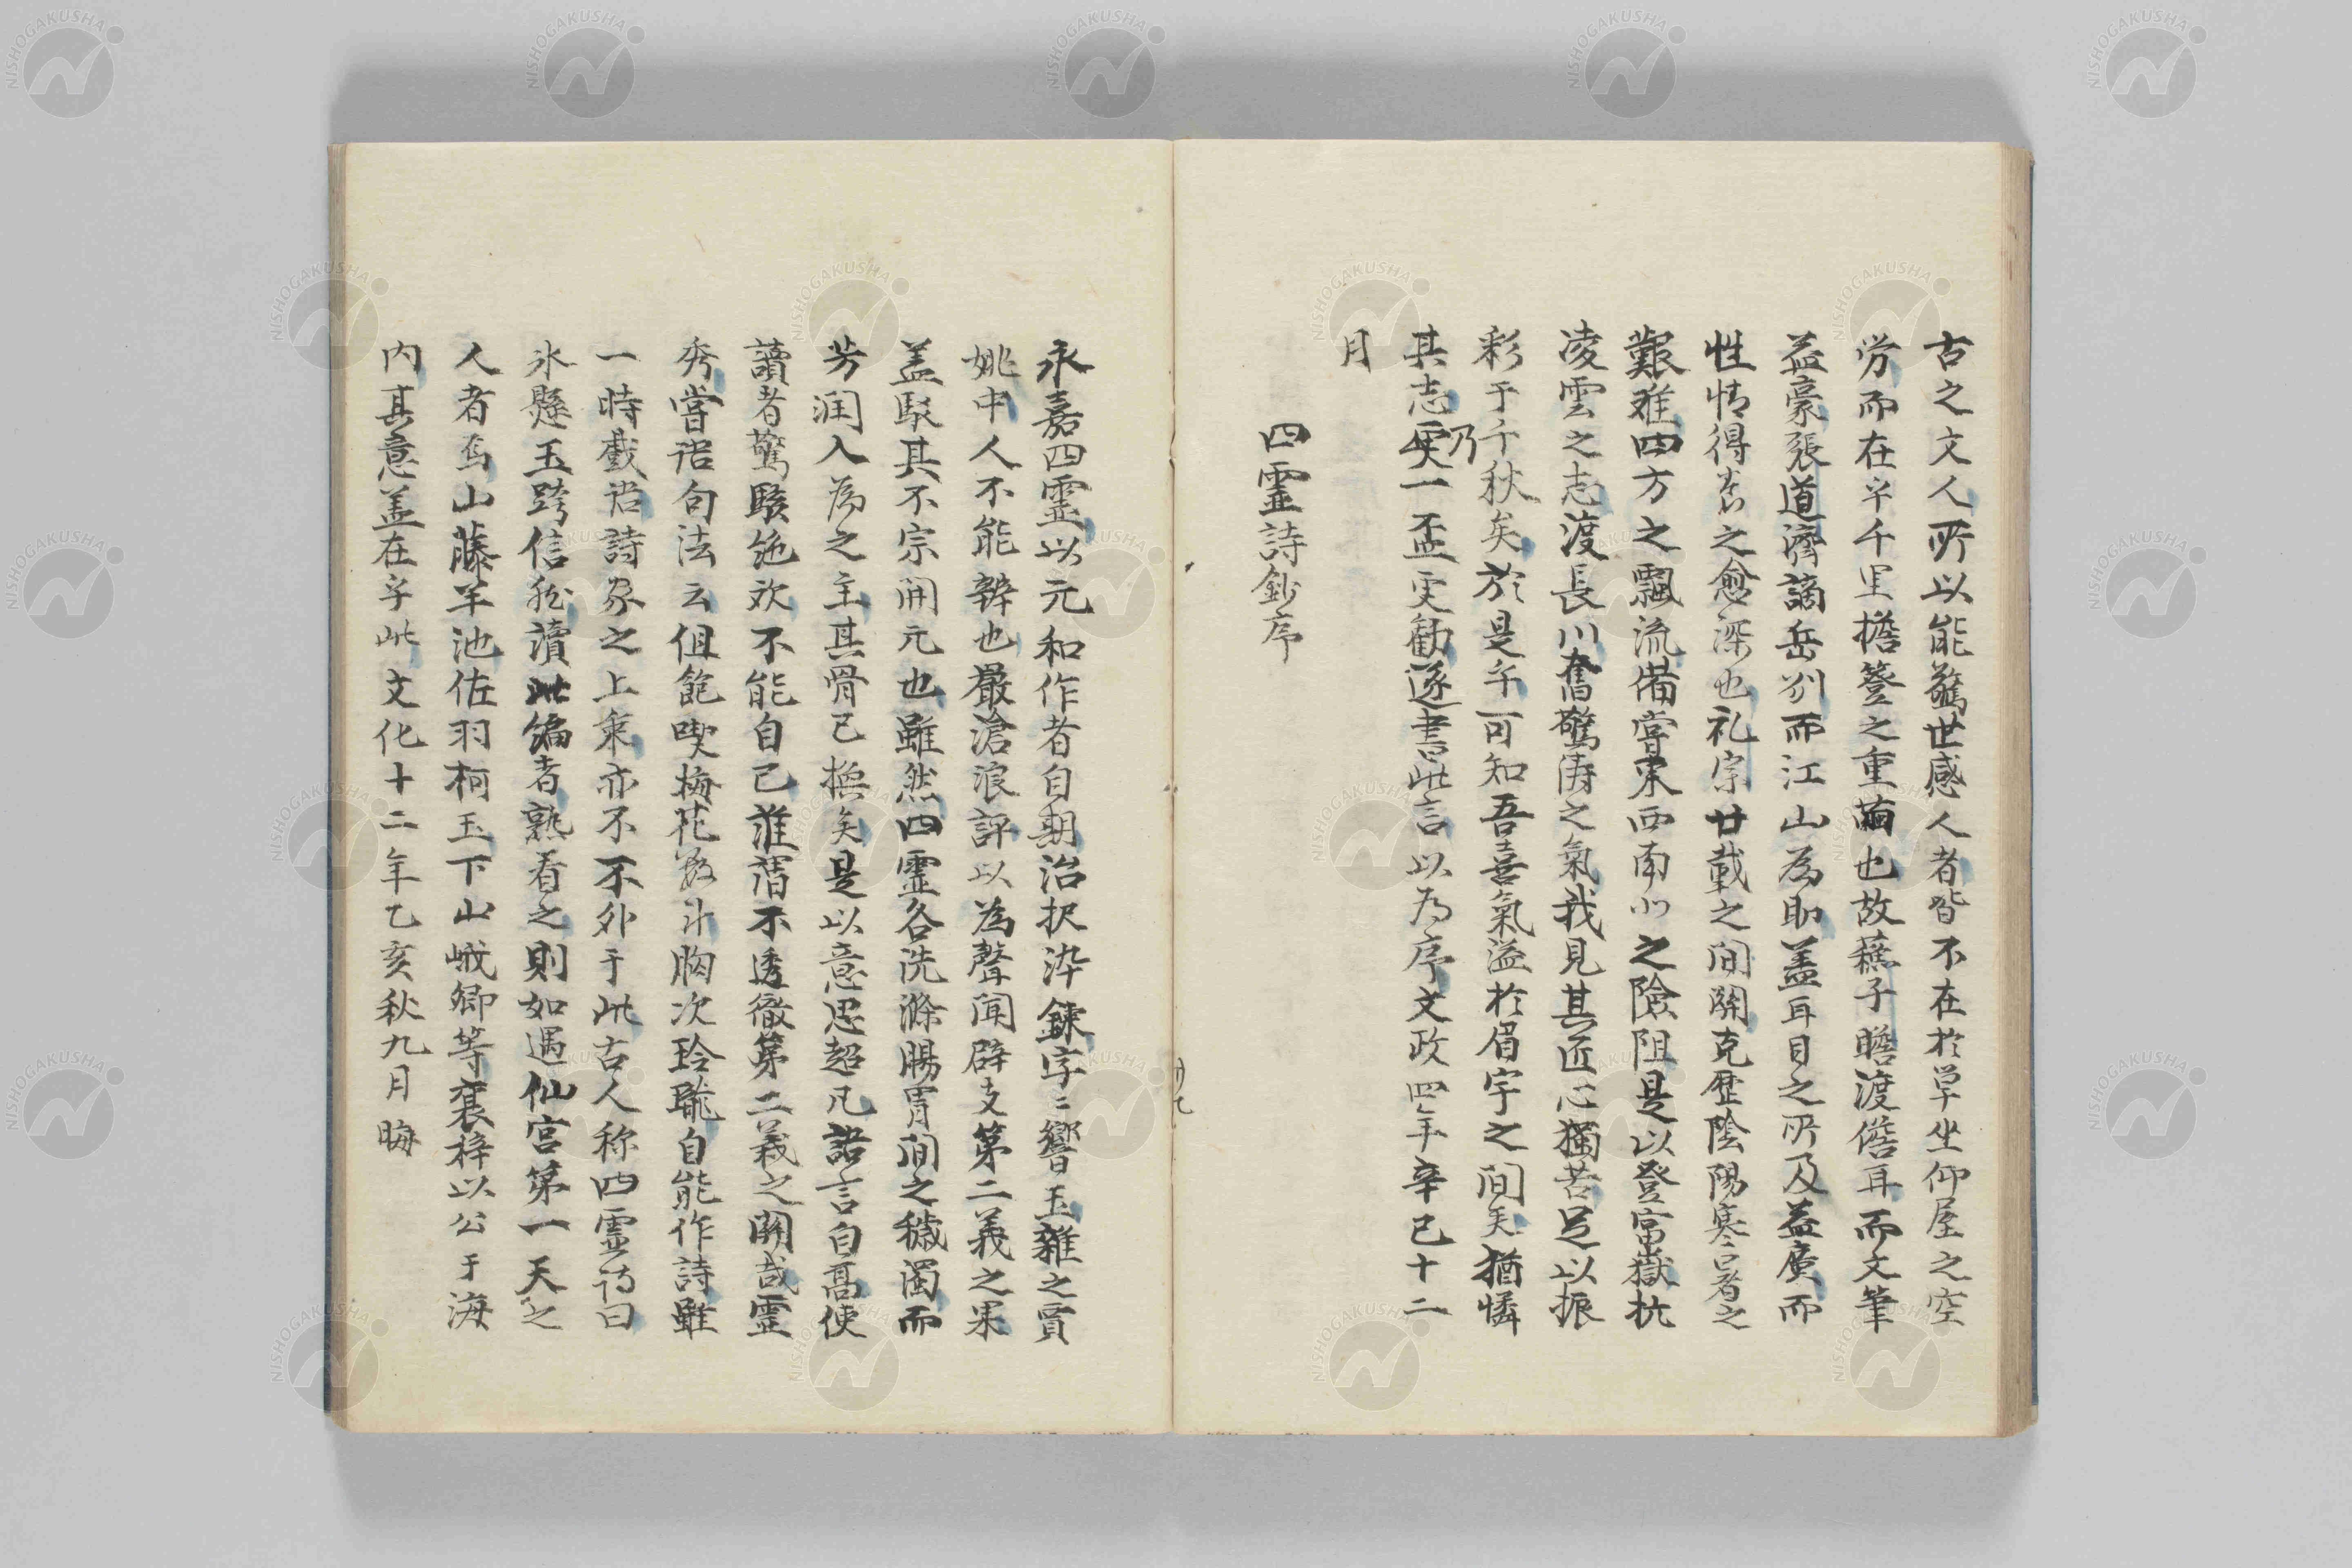 古之文人所以能驚世感人者皆不在於単坐仰屋之空
労而在乎千里擔簦之重繭也故蘓子瞻渡儋耳而文筆
益豪張道濟謫岳州而江山為助盖耳目之所及益廣而
性情得者之愈深也礼宗廿載之間關克歴陰陽寒暑之
艱难四方之飄流備嘗東西南北之險阻是以登富嶽抗
凌雲之志渡長川奮驚涛之氣我見其匠心獨苦足以振
彩于千秋矣於是乎可知吾喜氣溢於眉宇之間矣猶憐
其志乃一盃更勧遂書此言以为序文政四年辛巳十二
月
四霊詩鈔序
永嘉四霊以元和作者自期治択淬錬字〻響玉雜之賈
姚中人不能辨也嚴滄浪評以為聲聞辟支第二義之果
盖駁其不宗開元也雖然四霊各洗滌腸胃間之穢濁而
芳润入為之主其骨已換矣是以意思超凡語言自髙使
讀者驚駭絶欢不能自已誰謂不透徹第二義之關哉霊
秀嘗语句法云但飽喫梅花数斗胸次玲瓏自能作詩雖
一時戲语詩家之上乗亦不不外于此古人称四霊詩曰
氷懸玉跨信然讀此編者熟看之則如遇仙宮第一天之
人者焉山藤羊池佐羽柯玉下山峨卿等褰梓以公于海
内其意盖在乎此文化十二年乙亥秋九月晦